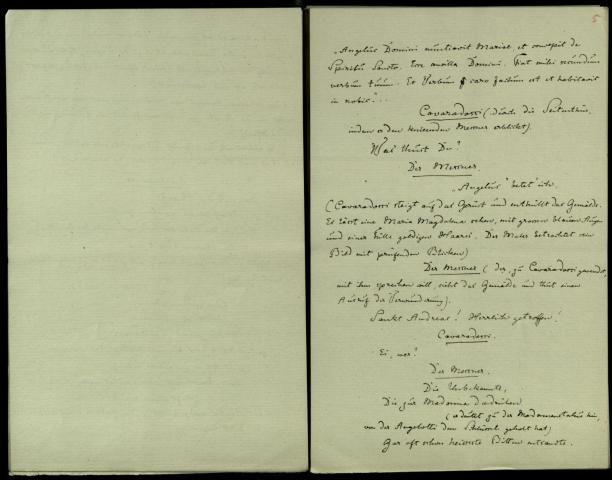 5
„Angelus Domini nuntiavit Mariae, et concepit de
Spiritu Sancto. Ecce ancilla Domini. Fiat mihi secundum
verbum tuum. Et Verbum caro factum est et habitavit
in nobis"...
Cavaradossi (durch die Seitenthür,
indem er den knieenden Messner erblickt)
Was thust Du?
Der Messner.
„Angelus" betet' ich.
(Cavaradossi steigt auf das Gerüst und enthüllt das Gemälde.
Es lässt eine Maria Magdalena sehen, mit grossen blauen Augen
und einer Fülle goldigen Haares. Der Maler betrachtet sein
Bild mit prüfenden Blicken)
Der Messner (der, zu Cavaradossi gewendet,
mit ihm sprechen will, sieht das Gemälde und thut einen
Ausruf der Verwunderung).
Sankt Andreas! Herrlich getroffen!
Cavaradossi.
Ei, wer?
Der Messner.
Die Unbekannte,
Die zur Madonna
(er deutet zu der Madonnenstatue hin,
von der Angelotti den Schlüssel geholt hat)
Gar oft schon heisseste Bitten entsandte.